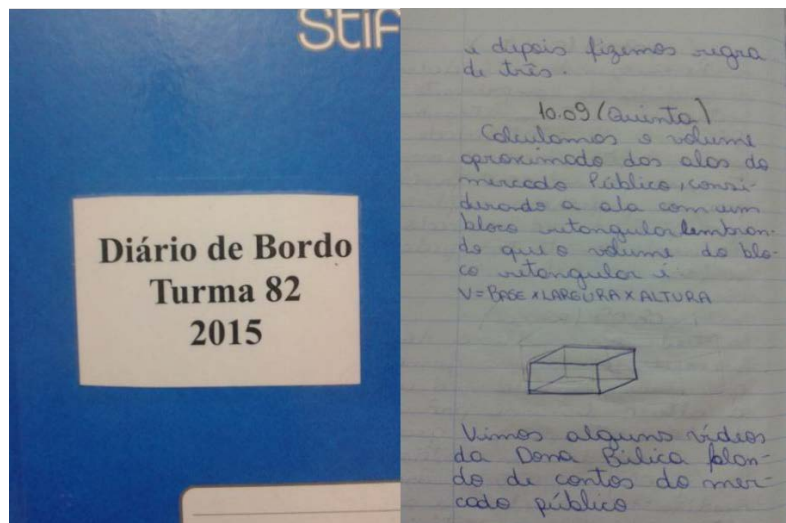 Stif
Diário de Bordo
Turma 82
2015
e depois fizemos regra
de três.
10.09 (Quinta)
Calculamos o volume
aproximado das alas do
mercado Público, consi-
derando a ala com um
bloco retangular lembran-
do que o volume do blo-
co retangular é
V=BASE x LARGURA X ALTURA
Vimos alguns vídeos
da Dona Bilica falan-
do de contos do mer-
cado público